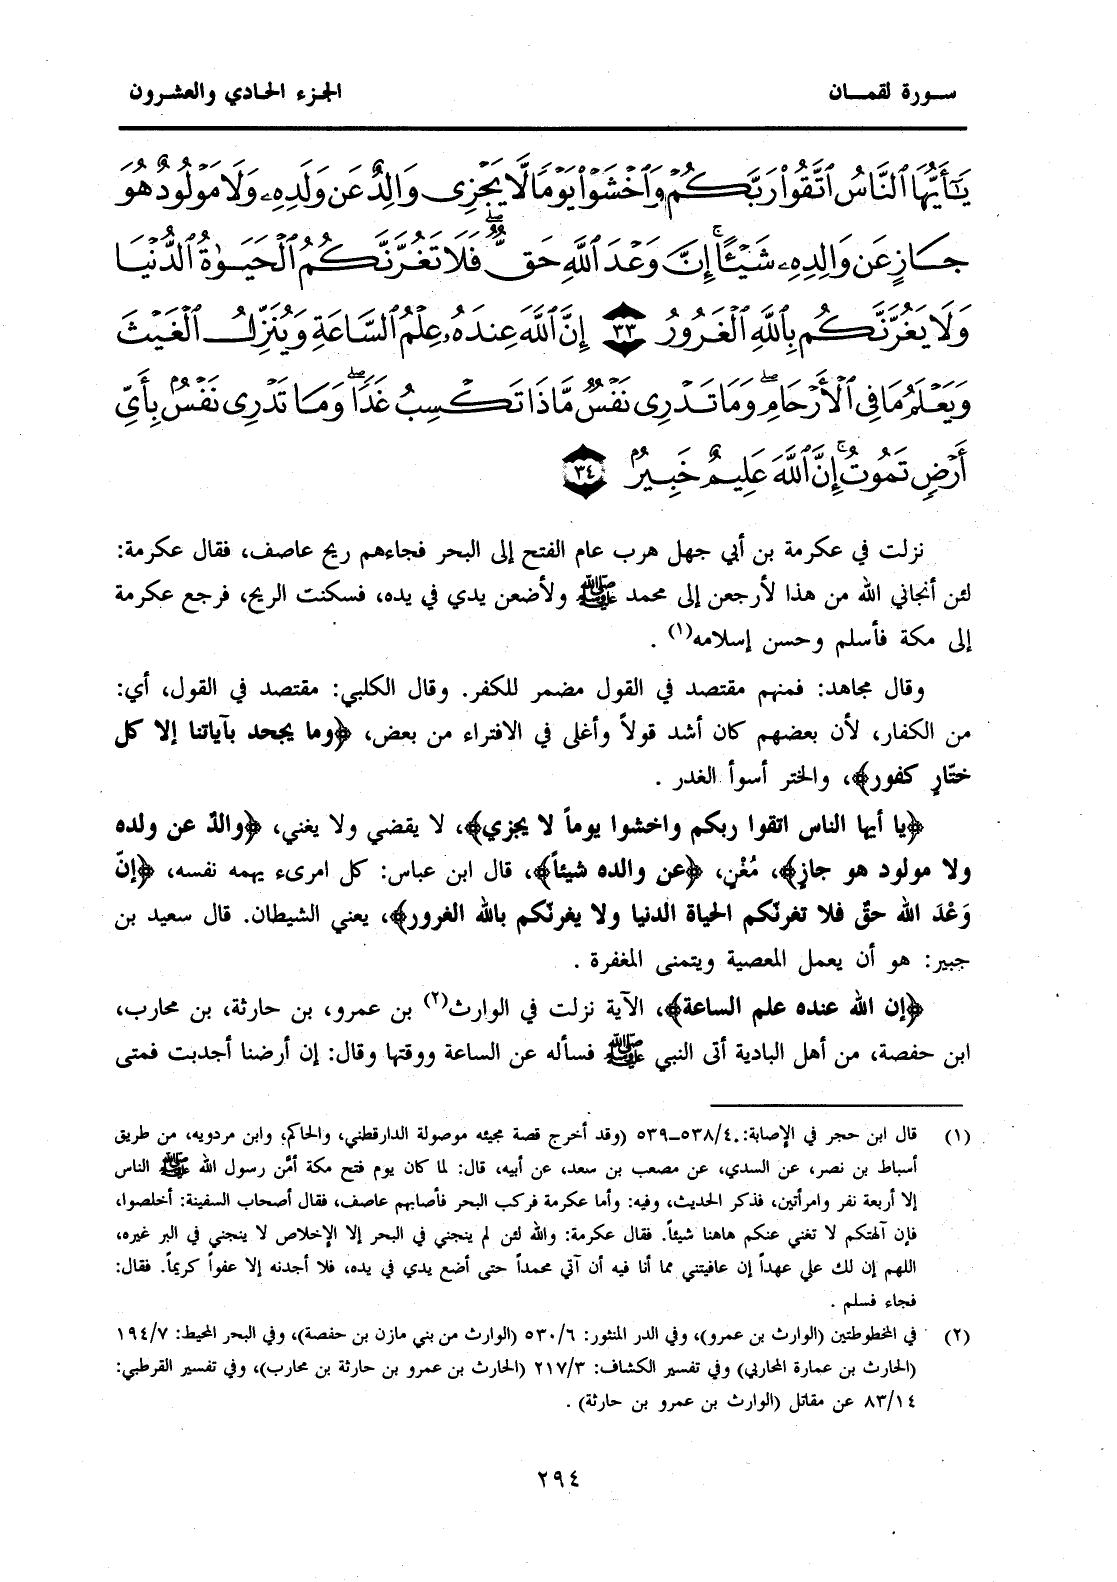 سورة لقمان
الجزء الحادي والعشرون
يَٰٓأَيُّهَا ٱلنَّاسُ ٱتَّقُوا۟ رَبَّكُمْ وَٱخْشَوْا۟ يَوْمًا لَّا يَجْزِى وَالِدٌ عَن وَلَدِهِۦ وَلَا مَوْلُودٌ هُوَ
جَازٍ عَن وَالِدِهِۦ شَيْـًٔا ۚ إِنَّ وَعْدَ ٱللَّهِ حَقٌّ ۖ فَلَا تَغُرَّنَّكُمُ ٱلْحَيَوٰةُ ٱلدُّنْيَا
وَلَا يَغُرَّنَّكُم بِٱللَّهِ ٱلْغَرُورُ ٣٣ إِنَّ ٱللَّهَ عِندَهُۥ عِلْمُ ٱلسَّاعَةِ وَيُنَزِّلُ ٱلْغَيْثَ
وَيَعْلَمُ مَا فِى ٱلْأَرْحَامِ ۖ وَمَا تَدْرِى نَفْسٌ مَّاذَا تَكْسِبُ غَدًا ۖ وَمَا تَدْرِى نَفْسٌۢ بِأَىِّ
أَرْضٍ تَمُوتُ ۚ إِنَّ ٱللَّهَ عَلِيمٌ خَبِيرٌۢ ٣٤
نزلت في عكرمة بن أبي جهل هرب عام الفتح إلى البحر فجاءهم ريح عاصف، فقال عكرمة:
لئن أنجاني الله من هذا لأرجعن إلى محمد ﷺ ولأضعن يدي في يده، فسكنت الريح، فرجع عكرمة
إلى مكة فأسلم وحسن إسلامه(١) .
وقال مجاهد: فمنهم مقتصد في القول مضمر للكفر. وقال الكلبي: مقتصد في القول، أي:
من الكفار، لأن بعضهم كان أشد قولاً وأغلى في الافتراء من بعض، ﴿وما يجحد بآياتنا إلا كل
ختّارٍ كفور﴾، والختر أسوأ الغدر .
﴿يا أيها الناس اتقوا ربكم واخشوا يوماً لا يجزي﴾، لا يقضي ولا يغني، ﴿والدٌ عن ولده
ولا مولود هو جازٍ﴾، مُغْنٍ، ﴿عن والده شيئاً﴾، قال ابن عباس: كل امرىء يهمه نفسه، ﴿إنّ
وَعْدَ الله حقٌ فلا تغرنّكم الحياة الدنيا ولا يغرنّكم بالله الغرور﴾، يعني الشيطان. قال سعيد بن
جبير: هو أن يعمل المعصية ويتمنى المغفرة .
﴿إن الله عنده علم الساعة﴾، الآية نزلت في الوارث(٢) بن عمرو، بن حارثة، بن محارب،
ابن حفصة، من أهل البادية أتى النبي ﷺ فسأله عن الساعة ووقتها وقال: إن أرضنا أجدبت فمتى
(١) قال ابن حجر في الإصابة: ٥٣٨/٤ـ٥٣٩ (وقد أخرج قصة مجيئه موصولة الدارقطني، والحاكم، وابن مردويه، من طريق
أسباط بن نصر، عن السدي، عن مصعب بن سعد، عن أبيه، قال: لما كان يوم فتح مكة أمَّن رسول الله ﷺ الناس
إلا أربعة نفر وامرأتين، فذكر الحديث، وفيه: وأما عكرمة فركب البحر فأصابهم عاصف، فقال أصحاب السفينة: أخلصوا،
فإن آلهتكم لا تغني عنكم هاهنا شيئاً. فقال عكرمة: والله لئن لم ينجني في البحر إلا الإخلاص لا ينجني في البر غيره،
اللهم إن لك علي عهداً إن عافيتني مما أنا فيه أن آتي محمداً حتى أضع يدي في يده، فلا أجدنه إلا عفواً كريماً. فقال:
فجاء فسلم .
(٢) في المخطوطتين (الوارث بن عمرو)، وفي الدر المنثور: ٥٣٠/٦ (الوارث من بني مازن بن حفصة)، وفي البحر المحيط: ١٩٤/٧
(الحارث بن عمارة المحاربي) وفي تفسير الكشاف: ٢١٧/٣ (الحارث بن عمرو بن حارثة بن محارب)، وفي تفسير القرطبي:
٨٣/١٤ عن مقاتل (الوارث بن عمرو بن حارثة) .
٢٩٤